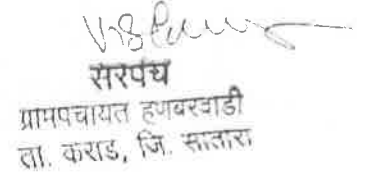 सरपंच
ग्रामपंचायत हणबरवाडी
ता. कराड, जि. सातारा